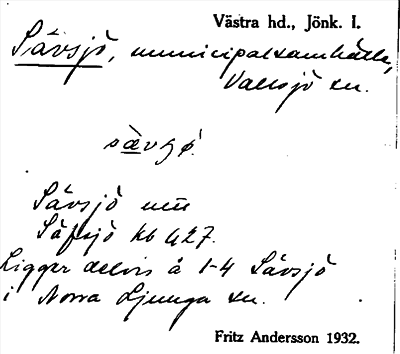 Västra hd., Jönk. l.
Sävsjö, municipalsamhälle,
Vallsjö sn.
sävʒø̀.
Sävsjö um̄
Säfsjö kb 427.
Ligger delvis å 1-4 Sävsjö
i Norra Ljunga sn.
Fritz Andersson 1932.